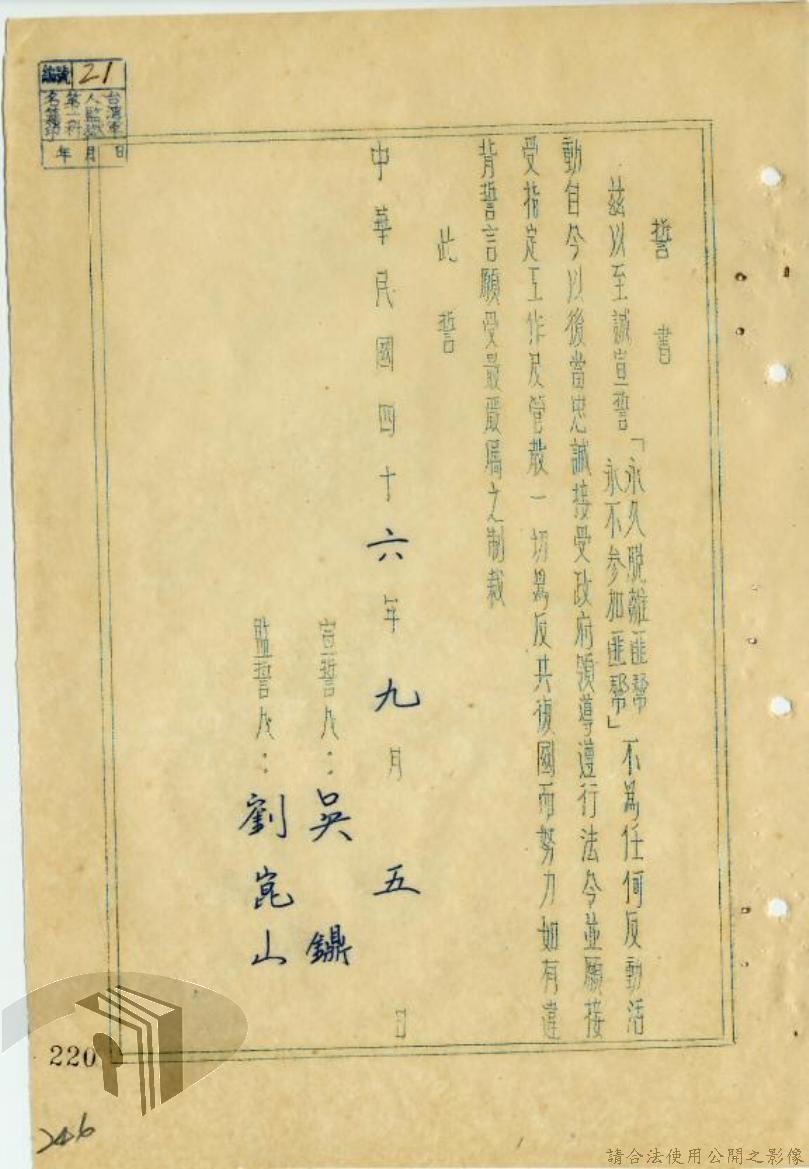 編號 21
台灣軍
人監獄
第一科
名籍股
年 月 日
誓書
茲以至誠宣誓「永久脫離匪幫
永不參加匪幫」不為任何反動活
動自今以後當忠誠接受政府領導遵行法令並願接
受指定工作及管教一切為反共復國而努力如有違
背誓言願受最嚴厲之制裁
此誓
中華民國四十六年九月五日
宣誓人：吳鐤
監誓人：劉崑山
220
246
請合法使用公開之影像